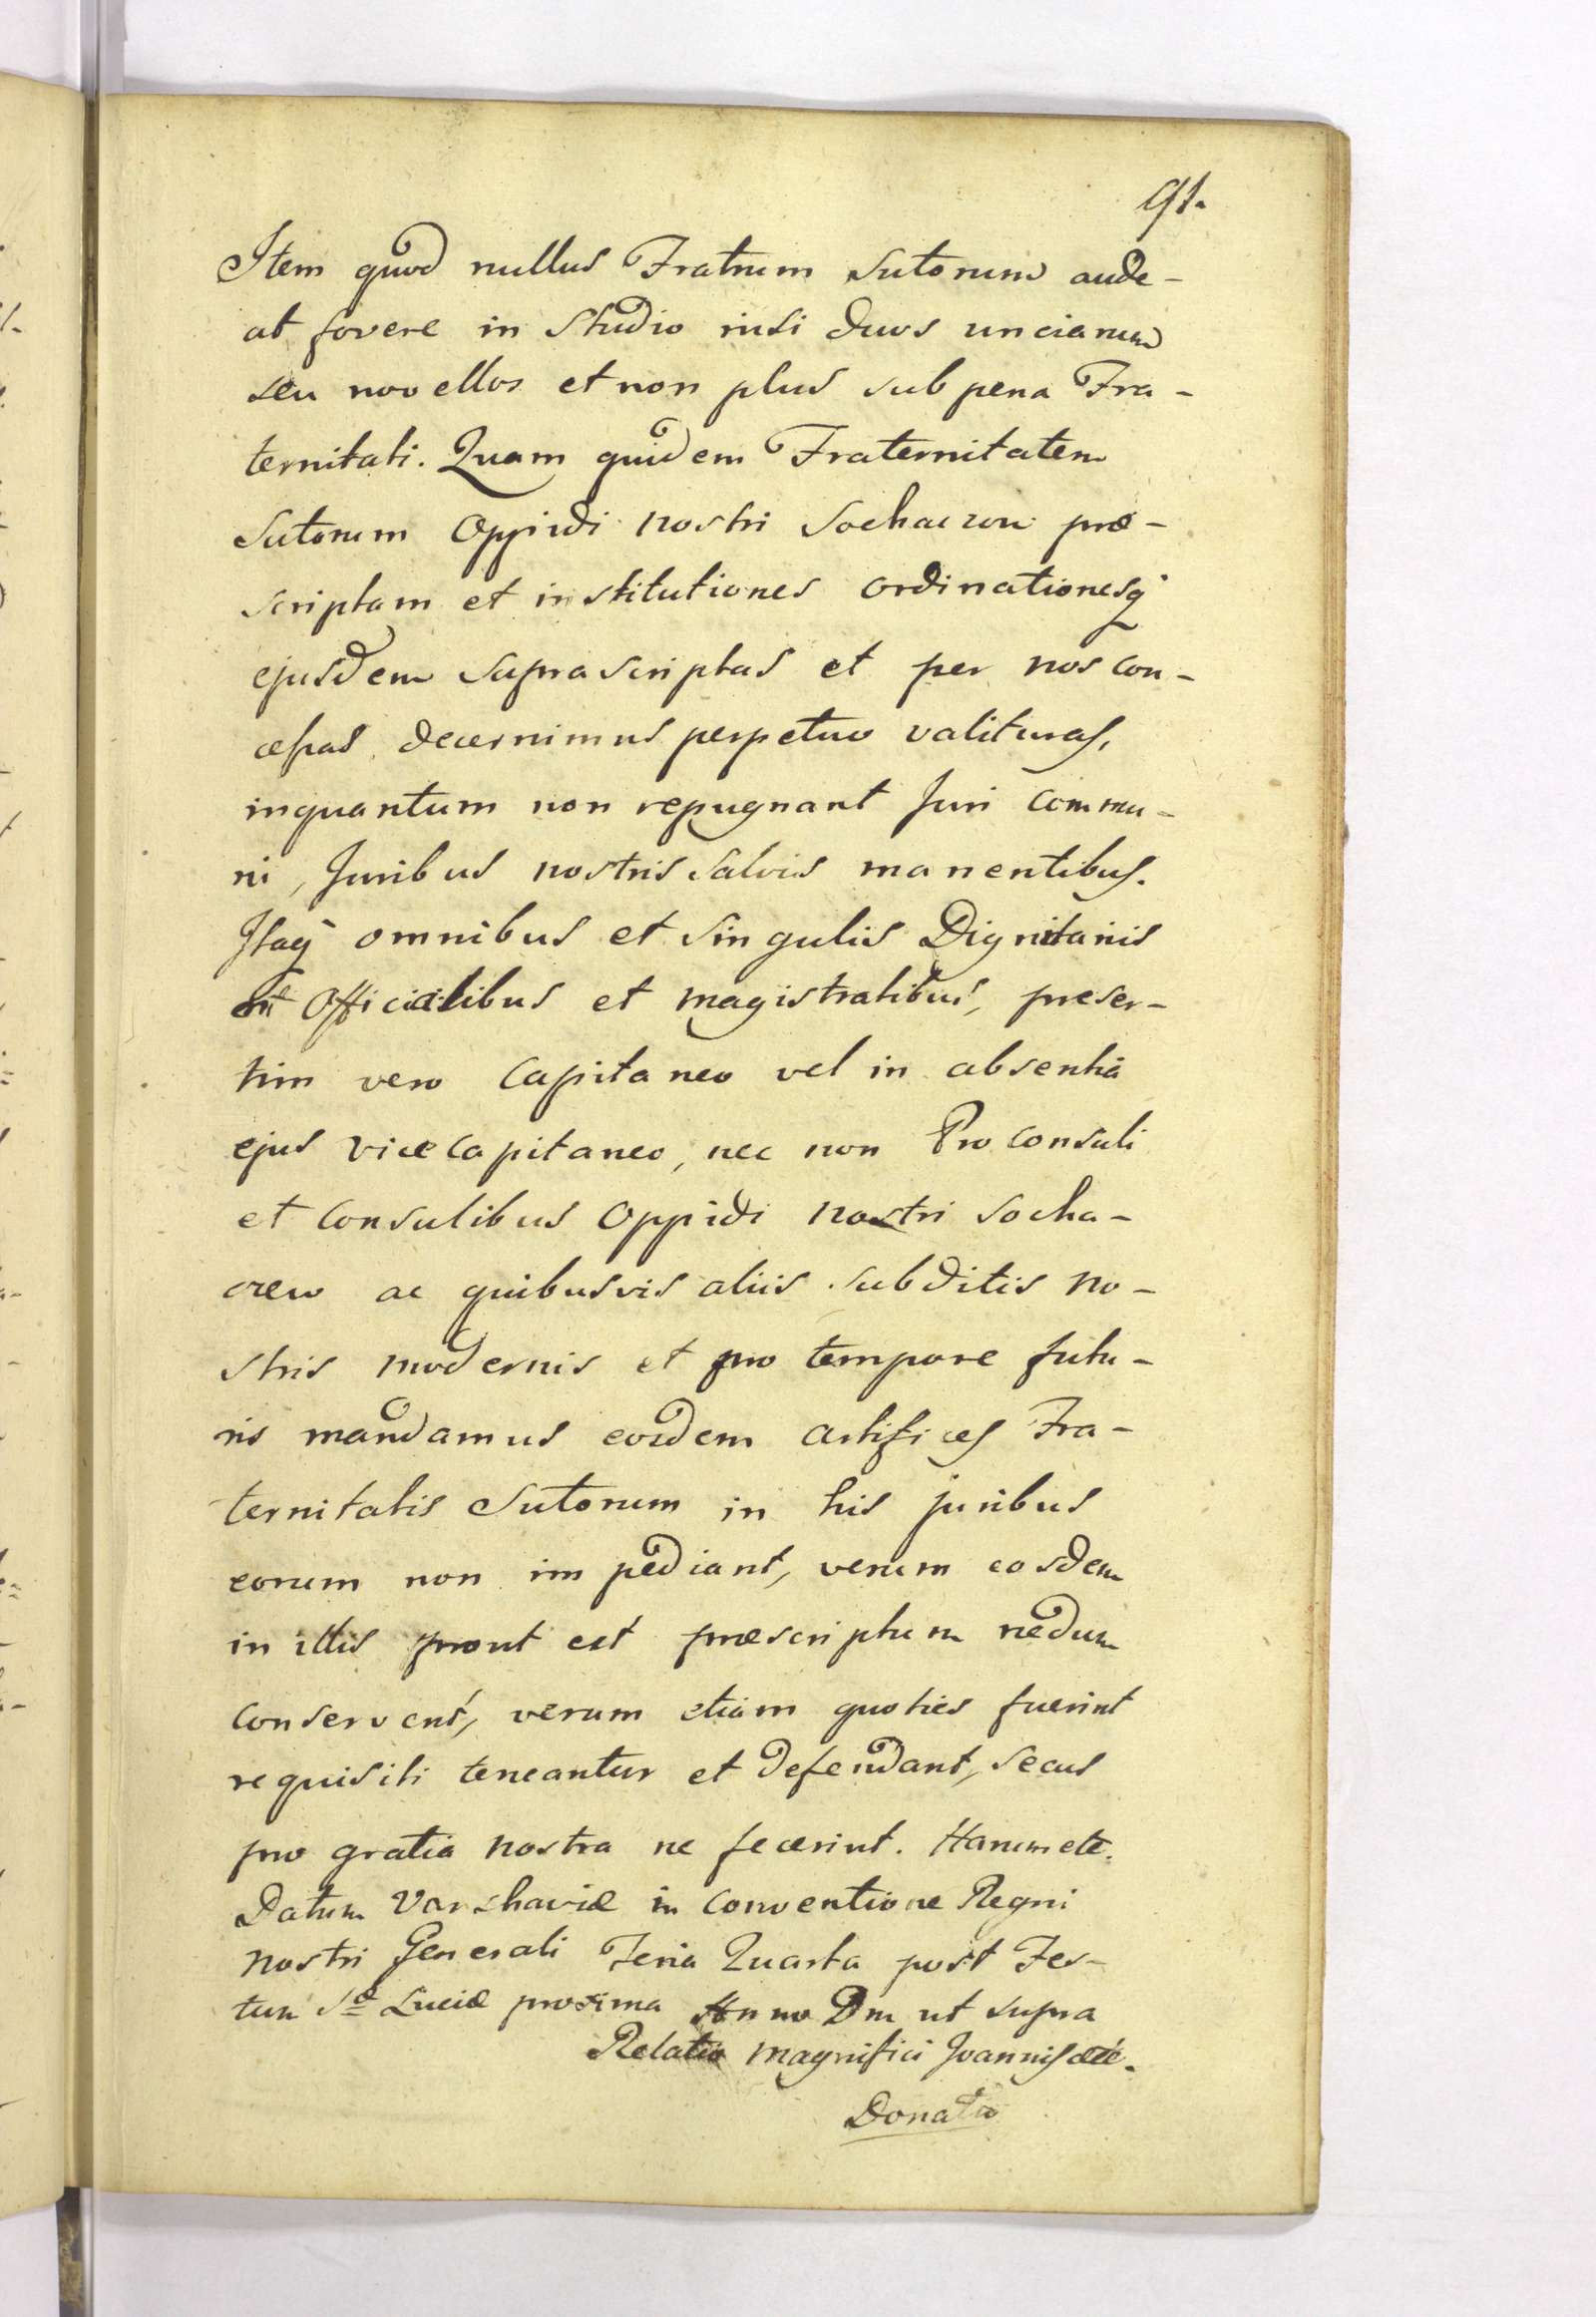 91.
Item quod nullus Fratrum Sutorum aude-
at fovere in Studio nisi duos uncianum
seu novellos et non plus sub pena Fra-
ternitati. Quam quidem Fraternitatem
Sutorum Oppidi nostri Sochaczew præ-
scriptam et institutiones ordinationesq
ejusdem suprascriptas et per nos con-
cessas decernimus perpetuo valituras,
inquantum non repugnant Juri commu-
ni, Juribus nostris salvis manentibus.
Itaq omnibus et singulis Dignitariis
Officialibus et magistratibus, preser-
tim vero Capitaneo vel in absentia
ejus vicecapitaneo, nec non Proconsuli
et Consulibus Oppidi nostri Socha-
czew ac quibusvis aliis subditis no-
stris modernis et pro tempore futu-
ris mandamus eosdem artifices Fra-
ternitatis Sutorum in his juribus
eorum non impediant, verum eosdem
in illis prout est præscriptum nedum
conservent, verum etiam quoties fuerint
requisiti teneantur et defendant, secus
pro gratia nostra ne fecerint. Harum etc.
Datum Varshaviæ in Conventione Regni
nostri Generali Feria Quarta post Fes-
tum Sæ Luciæ proxima Anno Dm ut supra
Relatio Magnifici Joannis etc.
Donatio